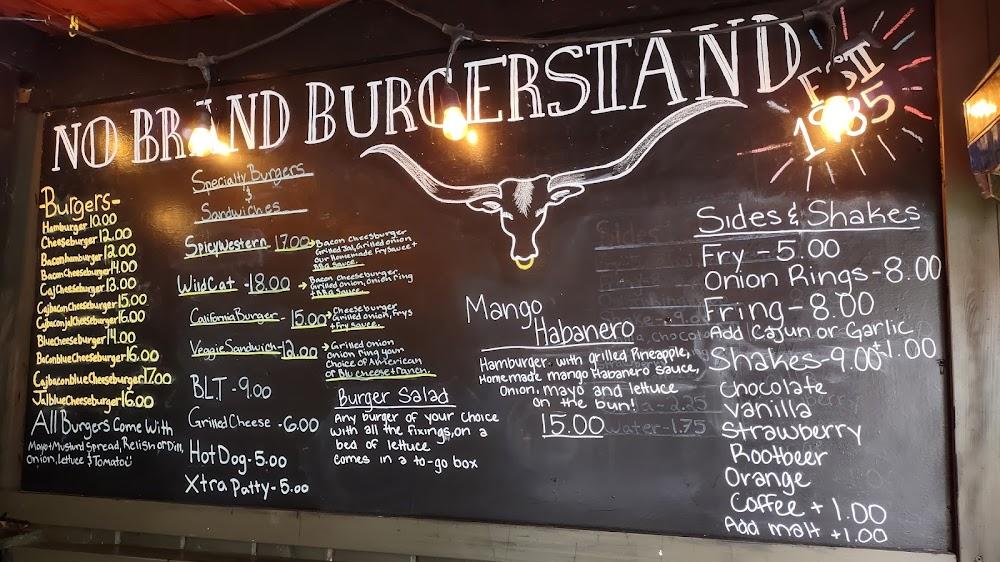 NO BRAND BURGERSTAND
EST
1985
-Burgers-
Hamburger 10.00
Cheeseburger 12.00
Baconhamburger 12.00
BaconCheeseburger 14.00
CajCheeseburger 13.00
CajbaconCheeseburger 15.00
CajbaconjalCheeseburger 16.00
BlueCheeseburger 14.00
BaconblueCheeseburger 16.00
CajbaconblueCheeseburger 17.00
JalblueCheeseburger 16.00
All Burgers Come With
Mayo+Mustard Spread, Relish or Dill,
Onion, Lettuce & Tomato
Specialty Burgers
&
Sandwiches
Spicywestern - 17.00
Bacon Cheesburger
Grilled Jal, Grilled onion
our Homemade Frysauce +
BBQ Sauce.
WildCat - 18.00
Bacon Cheeseburger,
Grilled onion, onion ring
+ BBQ Sauce.
CaliforniaBurger - 15.00
Cheeseburger
Grilled onion, Frys
+ Fry Sauce.
VeggieSandwich - 12.00
Grilled onion
onion ring your
Choice of American
or Blu cheese + ranch.
BLT - 9.00
GrilledCheese - 6.00
HotDog - 5.00
Xtra Patty - 5.00
Burger Salad
Any burger of your choice
with all the fixings, on a
bed of lettuce
Comes in a to-go box
Mango
Habanero
Hamburger with grilled Pineapple,
Homemade mango Habanero sauce,
Onion, mayo and lettuce
on the bun!
15.00
Water - 1.75
Sides & Shakes
Fry - 5.00
Onion Rings - 8.00
Fring - 8.00
Add Cajun or Garlic
+1.00
Shakes - 9.00
Chocolate
Vanilla
Strawberry
Rootbeer
Orange
Coffee + 1.00
Add malt +1.00